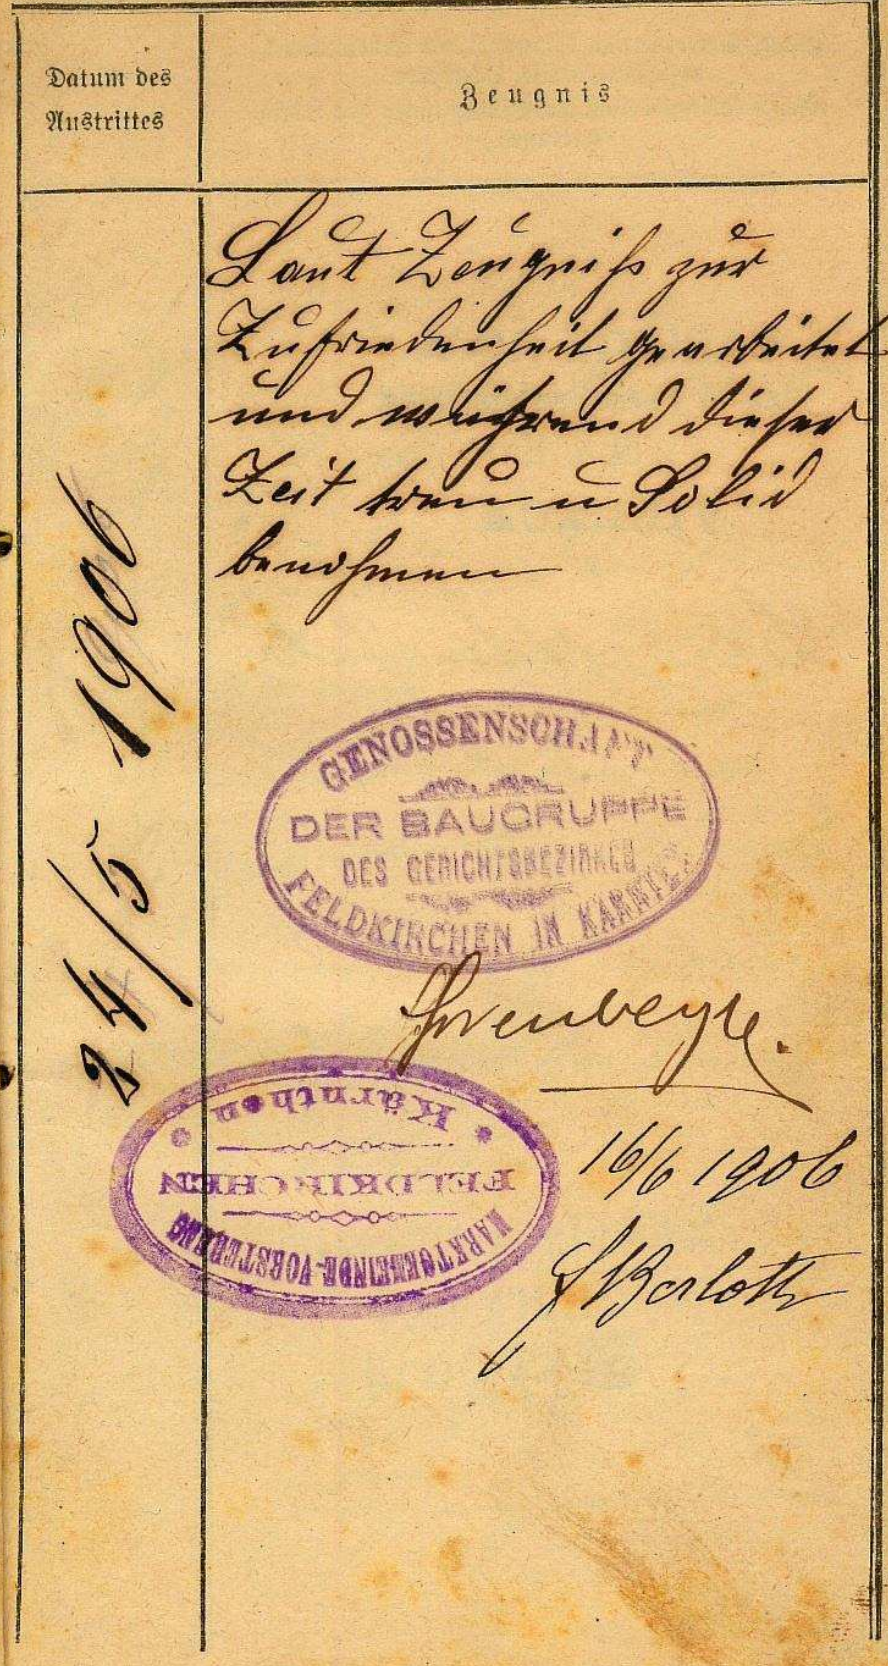 Datum des
Austrittes
Zeugnis
24/5 1906
Laut Zeugniß zur
Zufriedenheit gearbeitet
und während dieser
Zeit treu u Solid
benohmen
GENOSSENSCHAFT
DER BAUGRUPPE
DES GERICHTSBEZIRKES
FELDKIRCHEN IN KÄRNTEN
MARKTGEMEINDE-VORSTEHUNG
FELDKIRCHEN
Kärnthen
16/6 1906